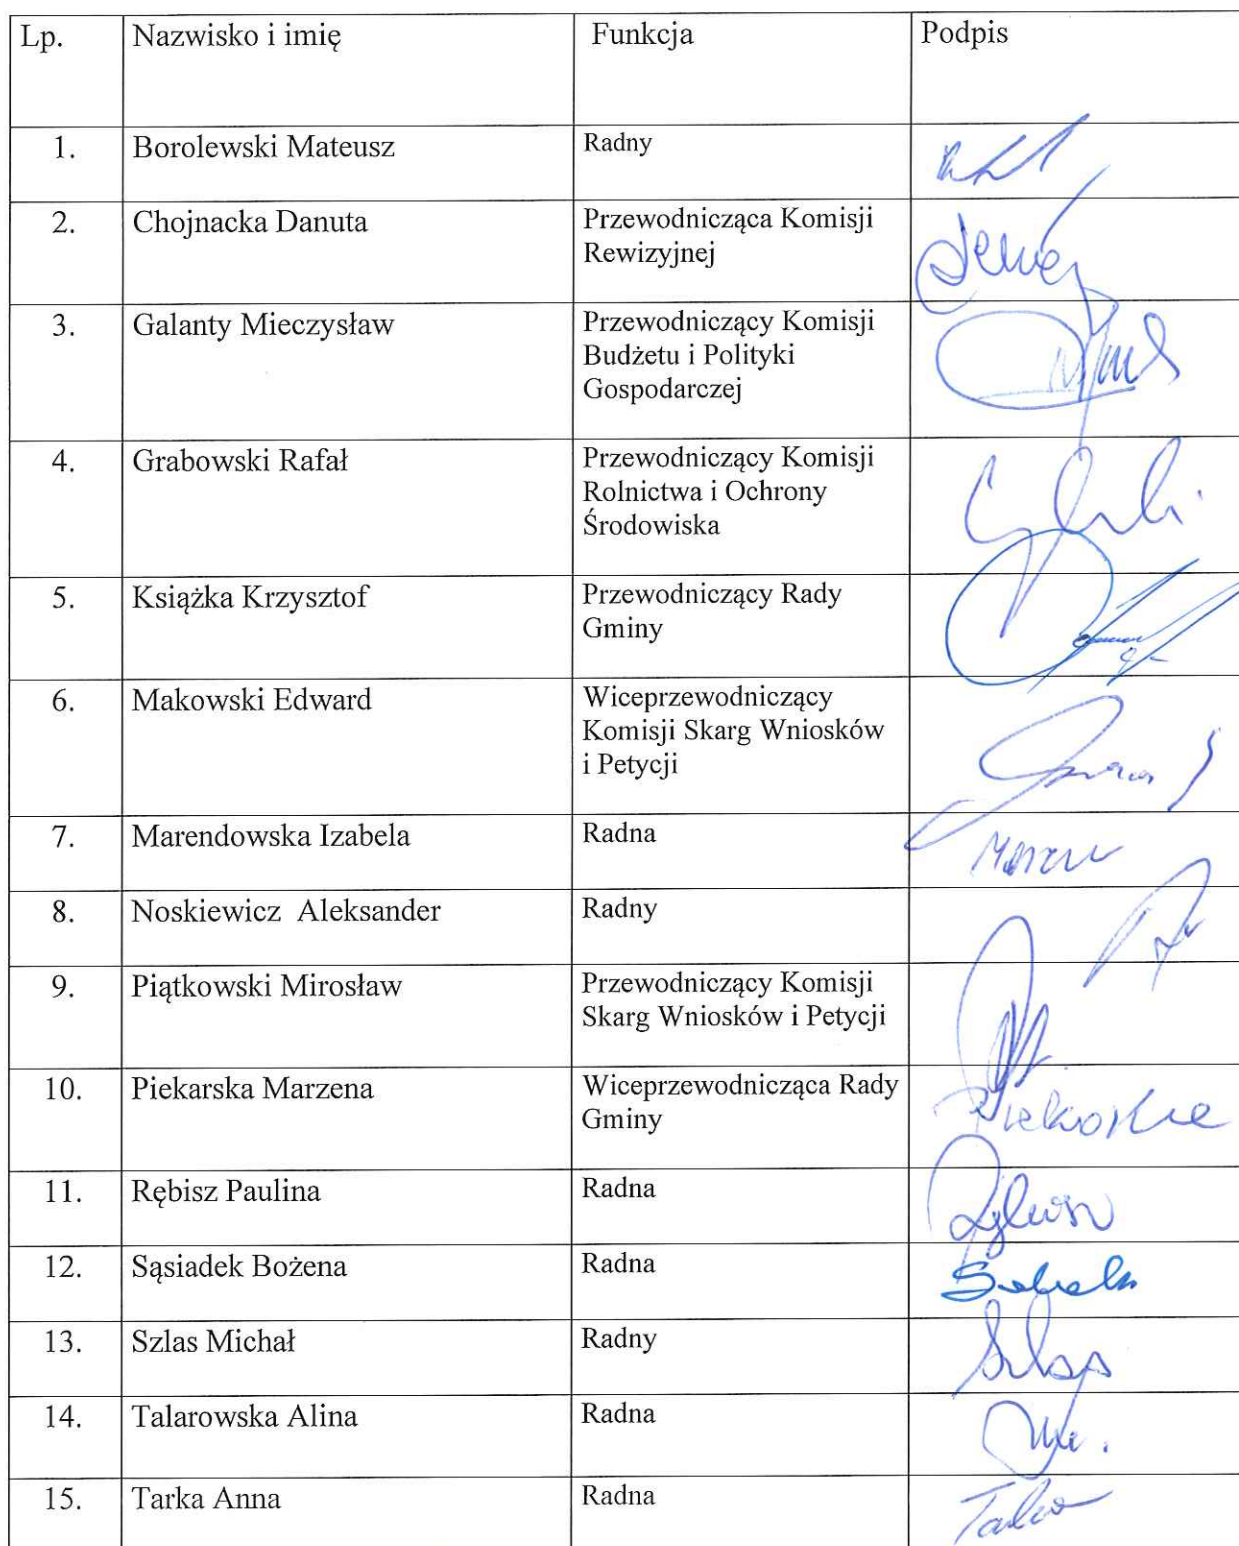 Lp. Nazwisko i imię Funkcja Podpis
1. Borolewski Mateusz Radny
2. Chojnacka Danuta Przewodnicząca Komisji
Rewizyjnej
3. Galanty Mieczysław Przewodniczący Komisji
Budżetu i Polityki
Gospodarczej
4. Grabowski Rafał Przewodniczący Komisji
Rolnictwa i Ochrony
Środowiska
5. Książka Krzysztof Przewodniczący Rady
Gminy
6. Makowski Edward Wiceprzewodniczący
Komisji Skarg Wniosków
i Petycji
7. Marendowska Izabela Radna
8. Noskiewicz Aleksander Radny
9. Piątkowski Mirosław Przewodniczący Komisji
Skarg Wniosków i Petycji
10. Piekarska Marzena Wiceprzewodnicząca Rady
Gminy Piekarska
11. Rębisz Paulina Radna
12. Sąsiadek Bożena Radna
13. Szlas Michał Radny Szlas
14. Talarowska Alina Radna
15. Tarka Anna Radna Tarka